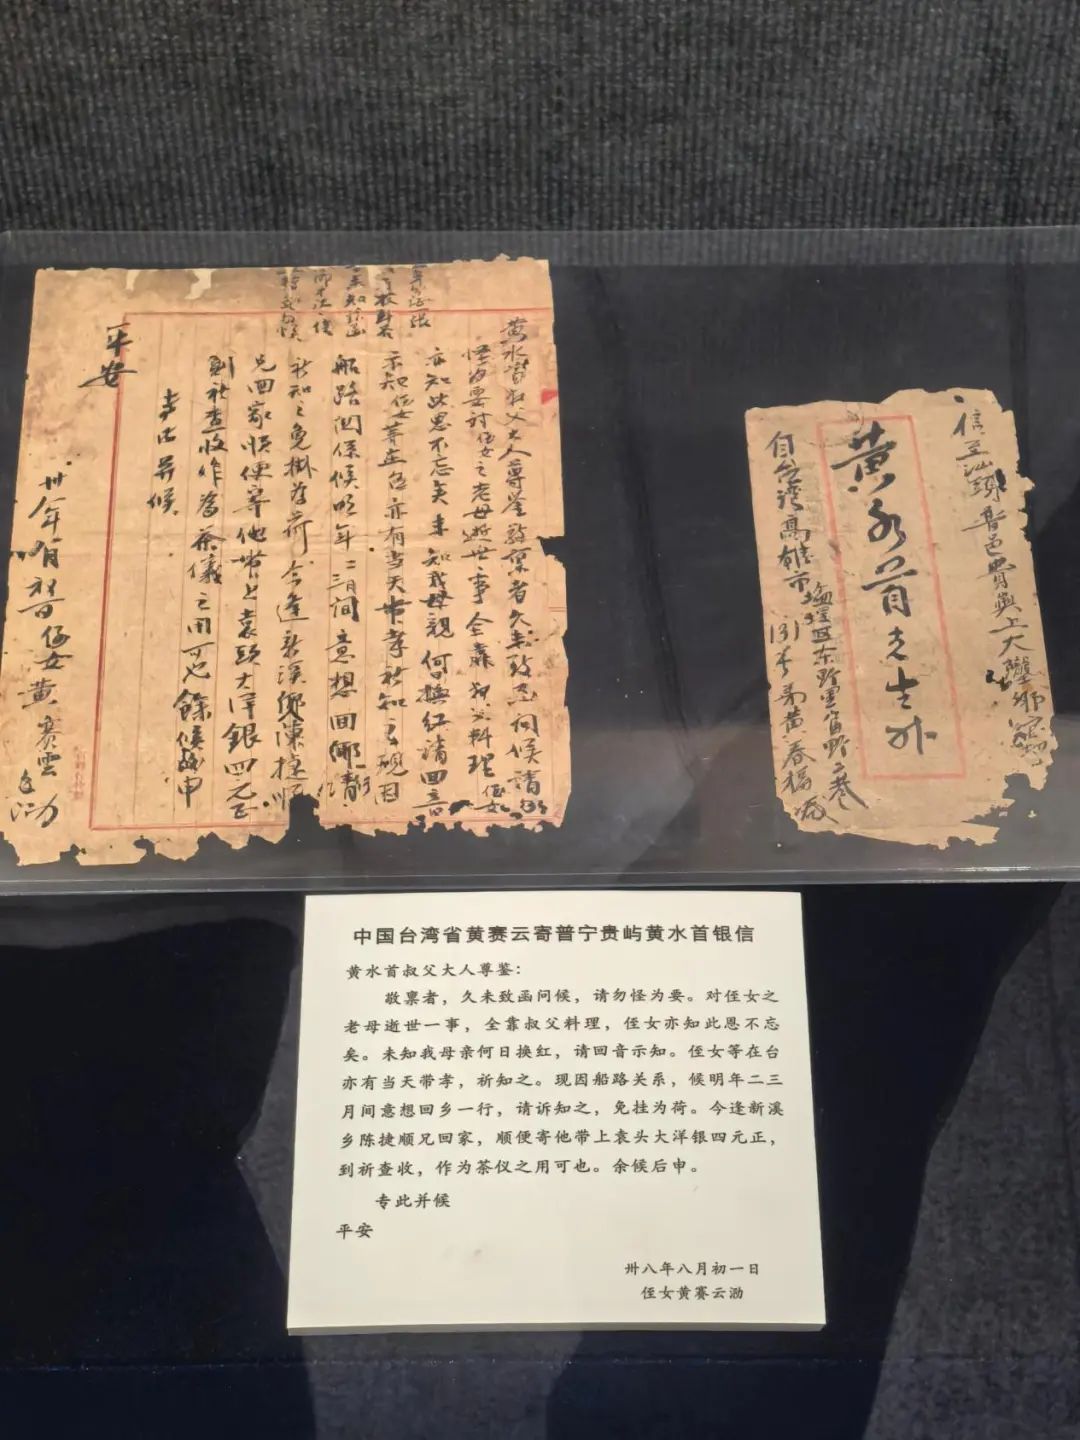 黄水首叔父大人尊鉴敬禀者久未致函问候请勿
怪为要对侄女之老母逝世一事全靠叔父料理侄女
亦知此恩不忘矣未知我母親何日换红請回音
示知侄女等在台亦有当天带孝祈知之現因
船路関係候明年二三月间意想回鄉
祈知之免掛為荷今逢新溪鄉陳捷順
兄回家順便寄他带上袁頭大洋銀四元正
到祈查收作為茶儀之用可也餘候後申
专此并候
平安
侄女黄賽雲泐
信至汕頭普邑貴嶼上大
黄水首先生升
自台灣高雄市塩埕區東
131号弟黄春福
中国台湾省黄赛云寄普宁贵屿黄水首银信
黄水首叔父大人尊鉴：
敬禀者，久未致函问候，请勿怪为要。对侄女之
老母逝世一事，全靠叔父料理，侄女亦知此恩不忘
矣。未知我母亲何日换红，请回音示知。侄女等在台
亦有当天带孝，祈知之。现因船路关系，候明年二三
月间意想回乡一行，请诉知之，免挂为荷。今逢新溪
乡陈捷顺兄回家，顺便寄他带上袁头大洋银四元正，
到祈查收，作为茶仪之用可也。余候后申。
专此并候
平安
卅八年八月初一日
侄女黄赛云泐